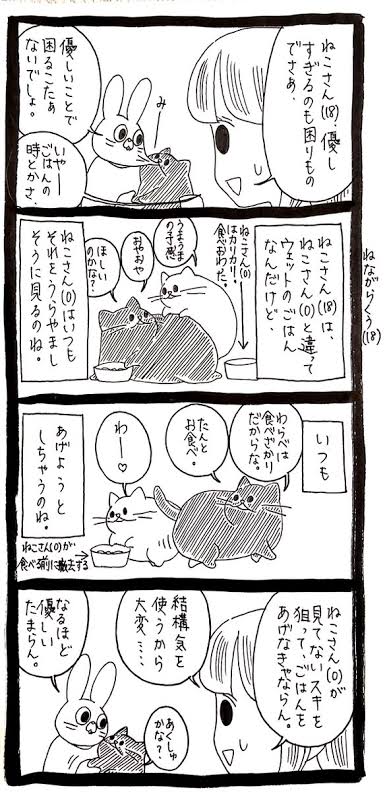 ねながらくう(18)
ねこさん(18)、優し
すぎるのも困りもの
でさあ、
み
優しいことで
困るこたぁ
ないでしょ。
いやー
ごはんの
時とかさ、
ねこさん(18)は、
ねこさん(0)と違って
ウェットのごはん
なんだけど、
ねこさん(0)
はカリカリ、
食べおわた。
うまうま
の予感
おやおや
ほしい
のかな?
ねこさん(0)はいつも
それをうらやまし
そうに見るのね。
いつも
わらべは
食べざかり
だからな。
たんと
お食べ。
わー♡
あげようと
しちゃうのね。
ねこさん(0)が
食べる前に撤去する
ねこさん(0)が
見てないスキを
狙って、ごはんを
あげなきゃならん。
結構気を
使うから
大変……
あくしゅ
かな?
なるほど
優しい
たまらん。